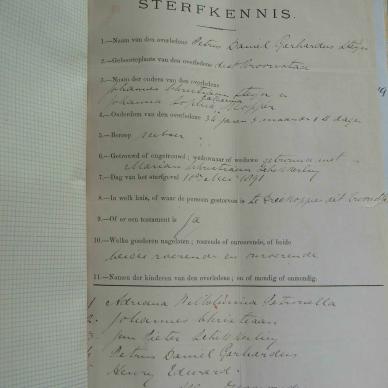 STERFKENNIS.
1.—Naam van den overledene Petrus Daniel Gerhardus Steyn
2.—Geboorteplaats van den overledene dist Kroonstad
3.—Namen der ouders van den overledene
Johannes Christiaan Steyn en
Catharina
Johanna Sophia
4.—Ouderdom van den overledene 34 jaren 9 maanden 8 dagen
5.—Beroep
6.—Getrouwd of ongetrouwd; weduwnaar of weduwe getrouwd met
7.—Dag van het sterfgeval 10de Mei 1891
8.—In welk huis, of waar de persoon gestorven is te dist
9.—Of er een testament is ja
10.—Welke goederen nagelaten; roerende of onroerende, of beide
beide roerende en onroerende
11.—Namen der kinderen van den overledene; en of mondig of onmondig.
1 Adriana Wilhelmina Petronella
2. Johannes Christiaan
3 Jan Pieter
4 Petrus Daniel Gerhardus
Henry Edward